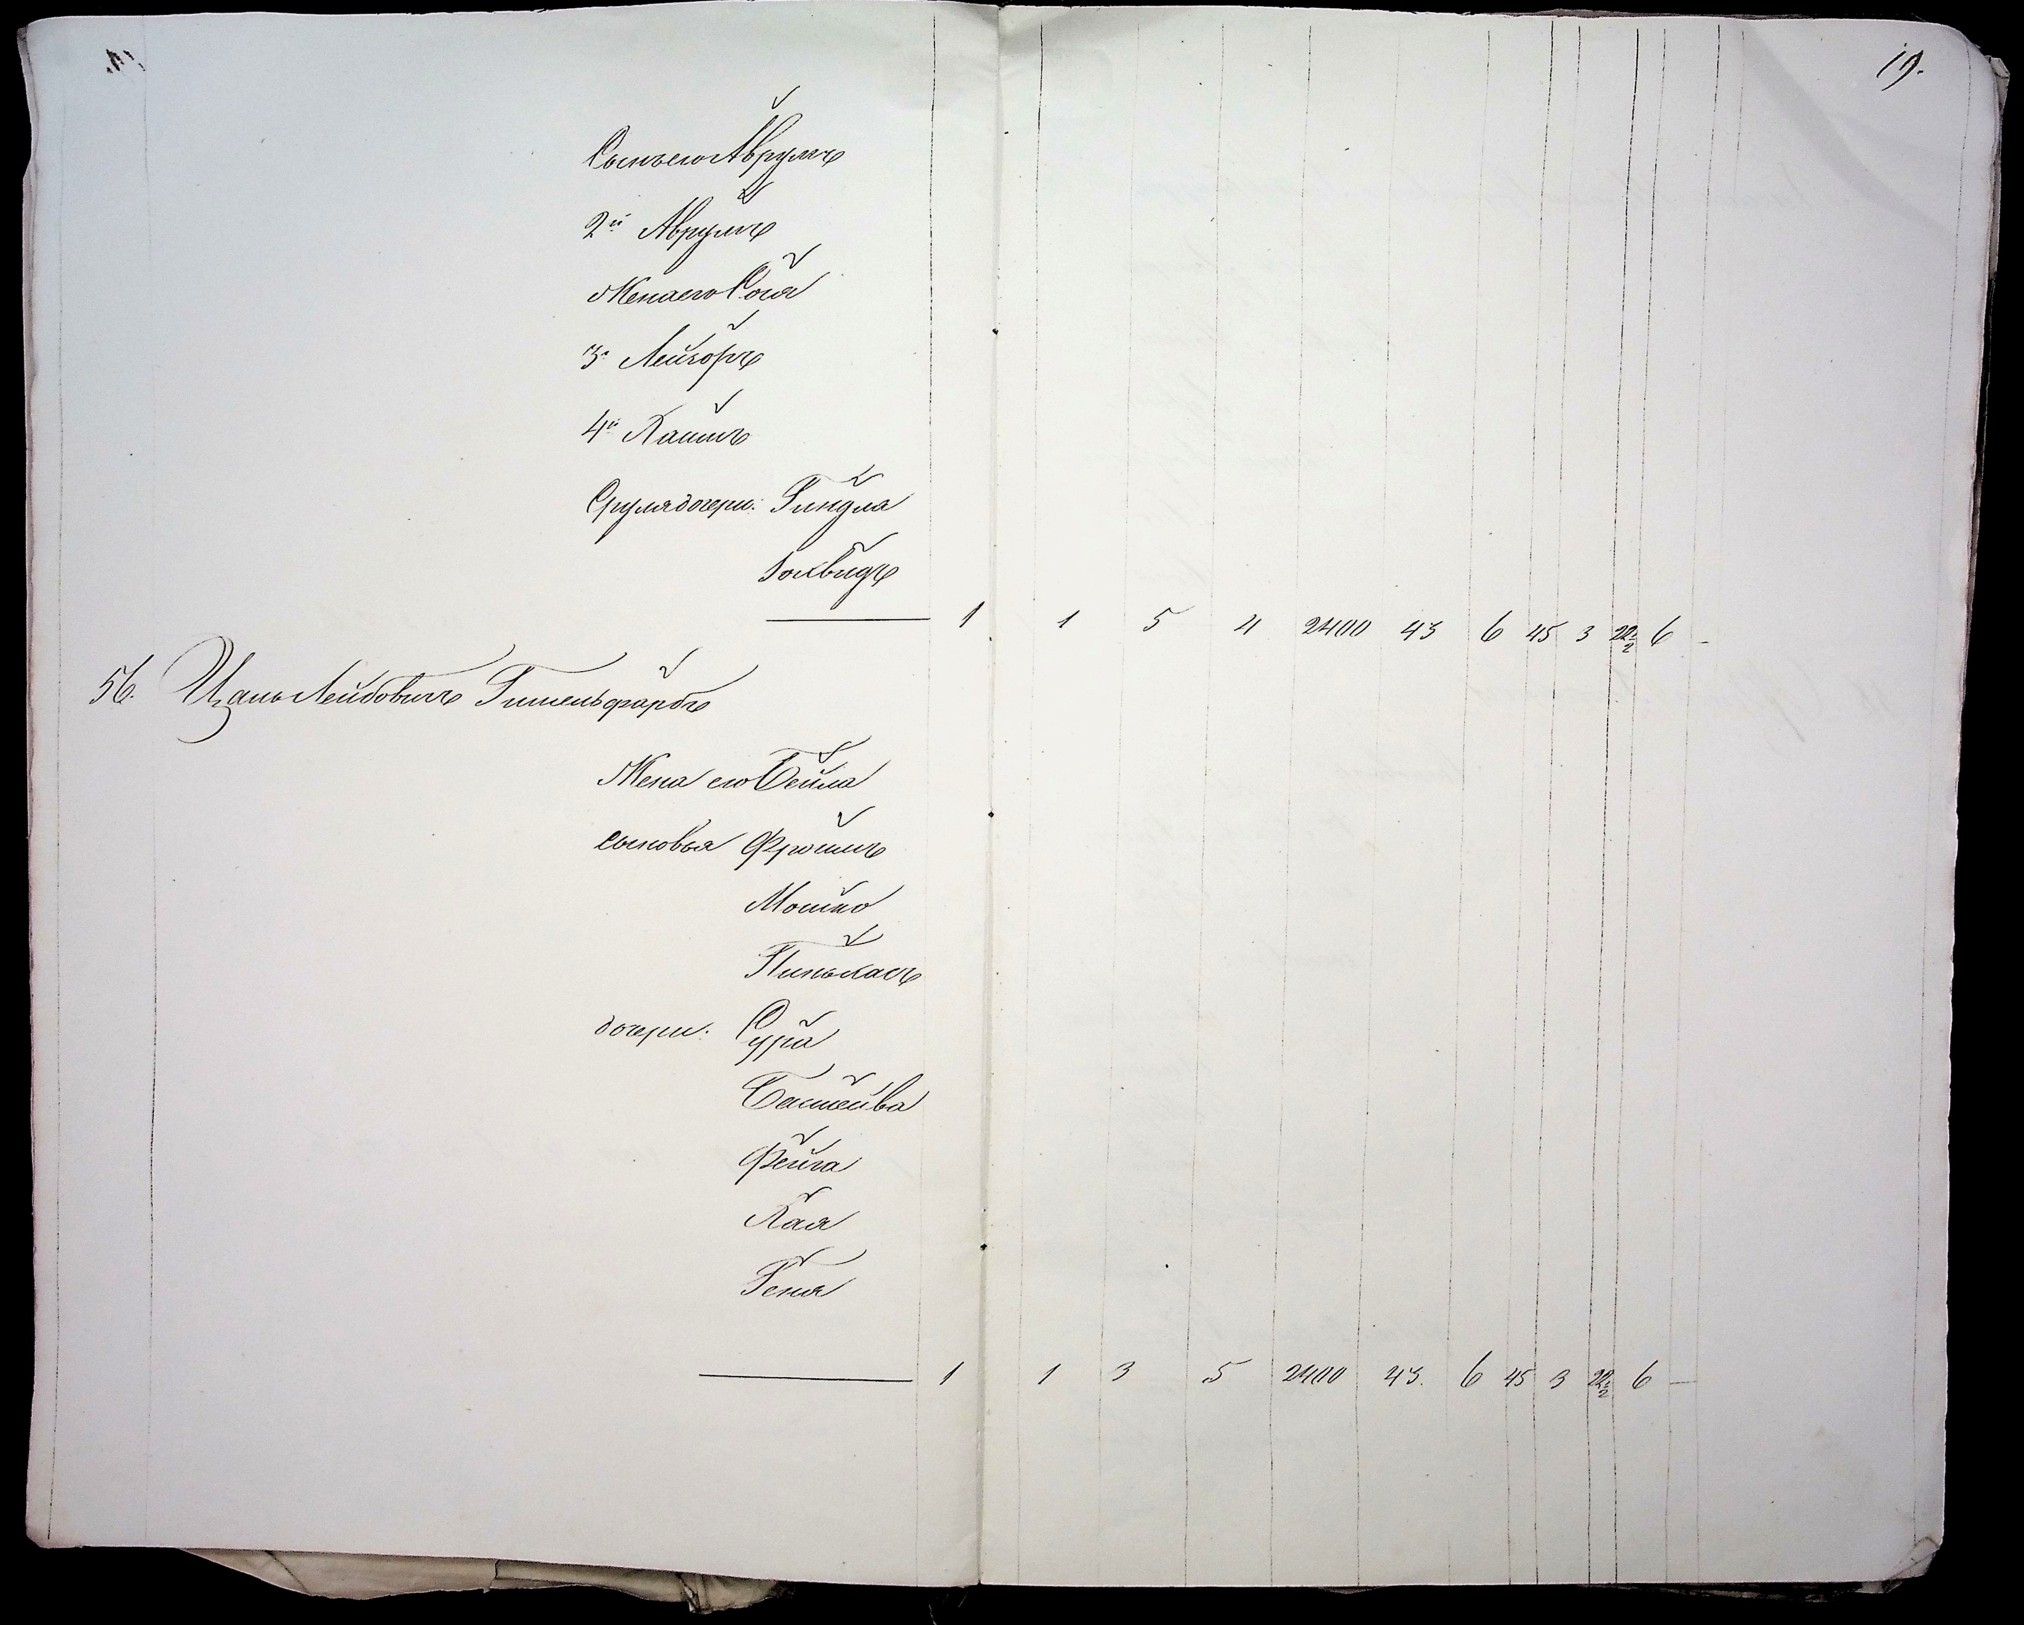 19.
Сынъ его Аврумъ
2й Аврумъ
Жена его Сося
3. Лейзоръ
4й Хаимъ
Сруля дочери: Гиндла
Іохвидъ
1 1 5 4 2400 43 6 45 3 22½ 6 —
56. Ицль Лейбовичъ Гительфарбъ
Жена его Бейла
сыновья Фроимъ
Мошко
Пинькасъ
дочери: Сура
Басшейва
Фейга
Хая
Геня
1 1 3 5 2400 43. 6 45 3 22½ 6 —